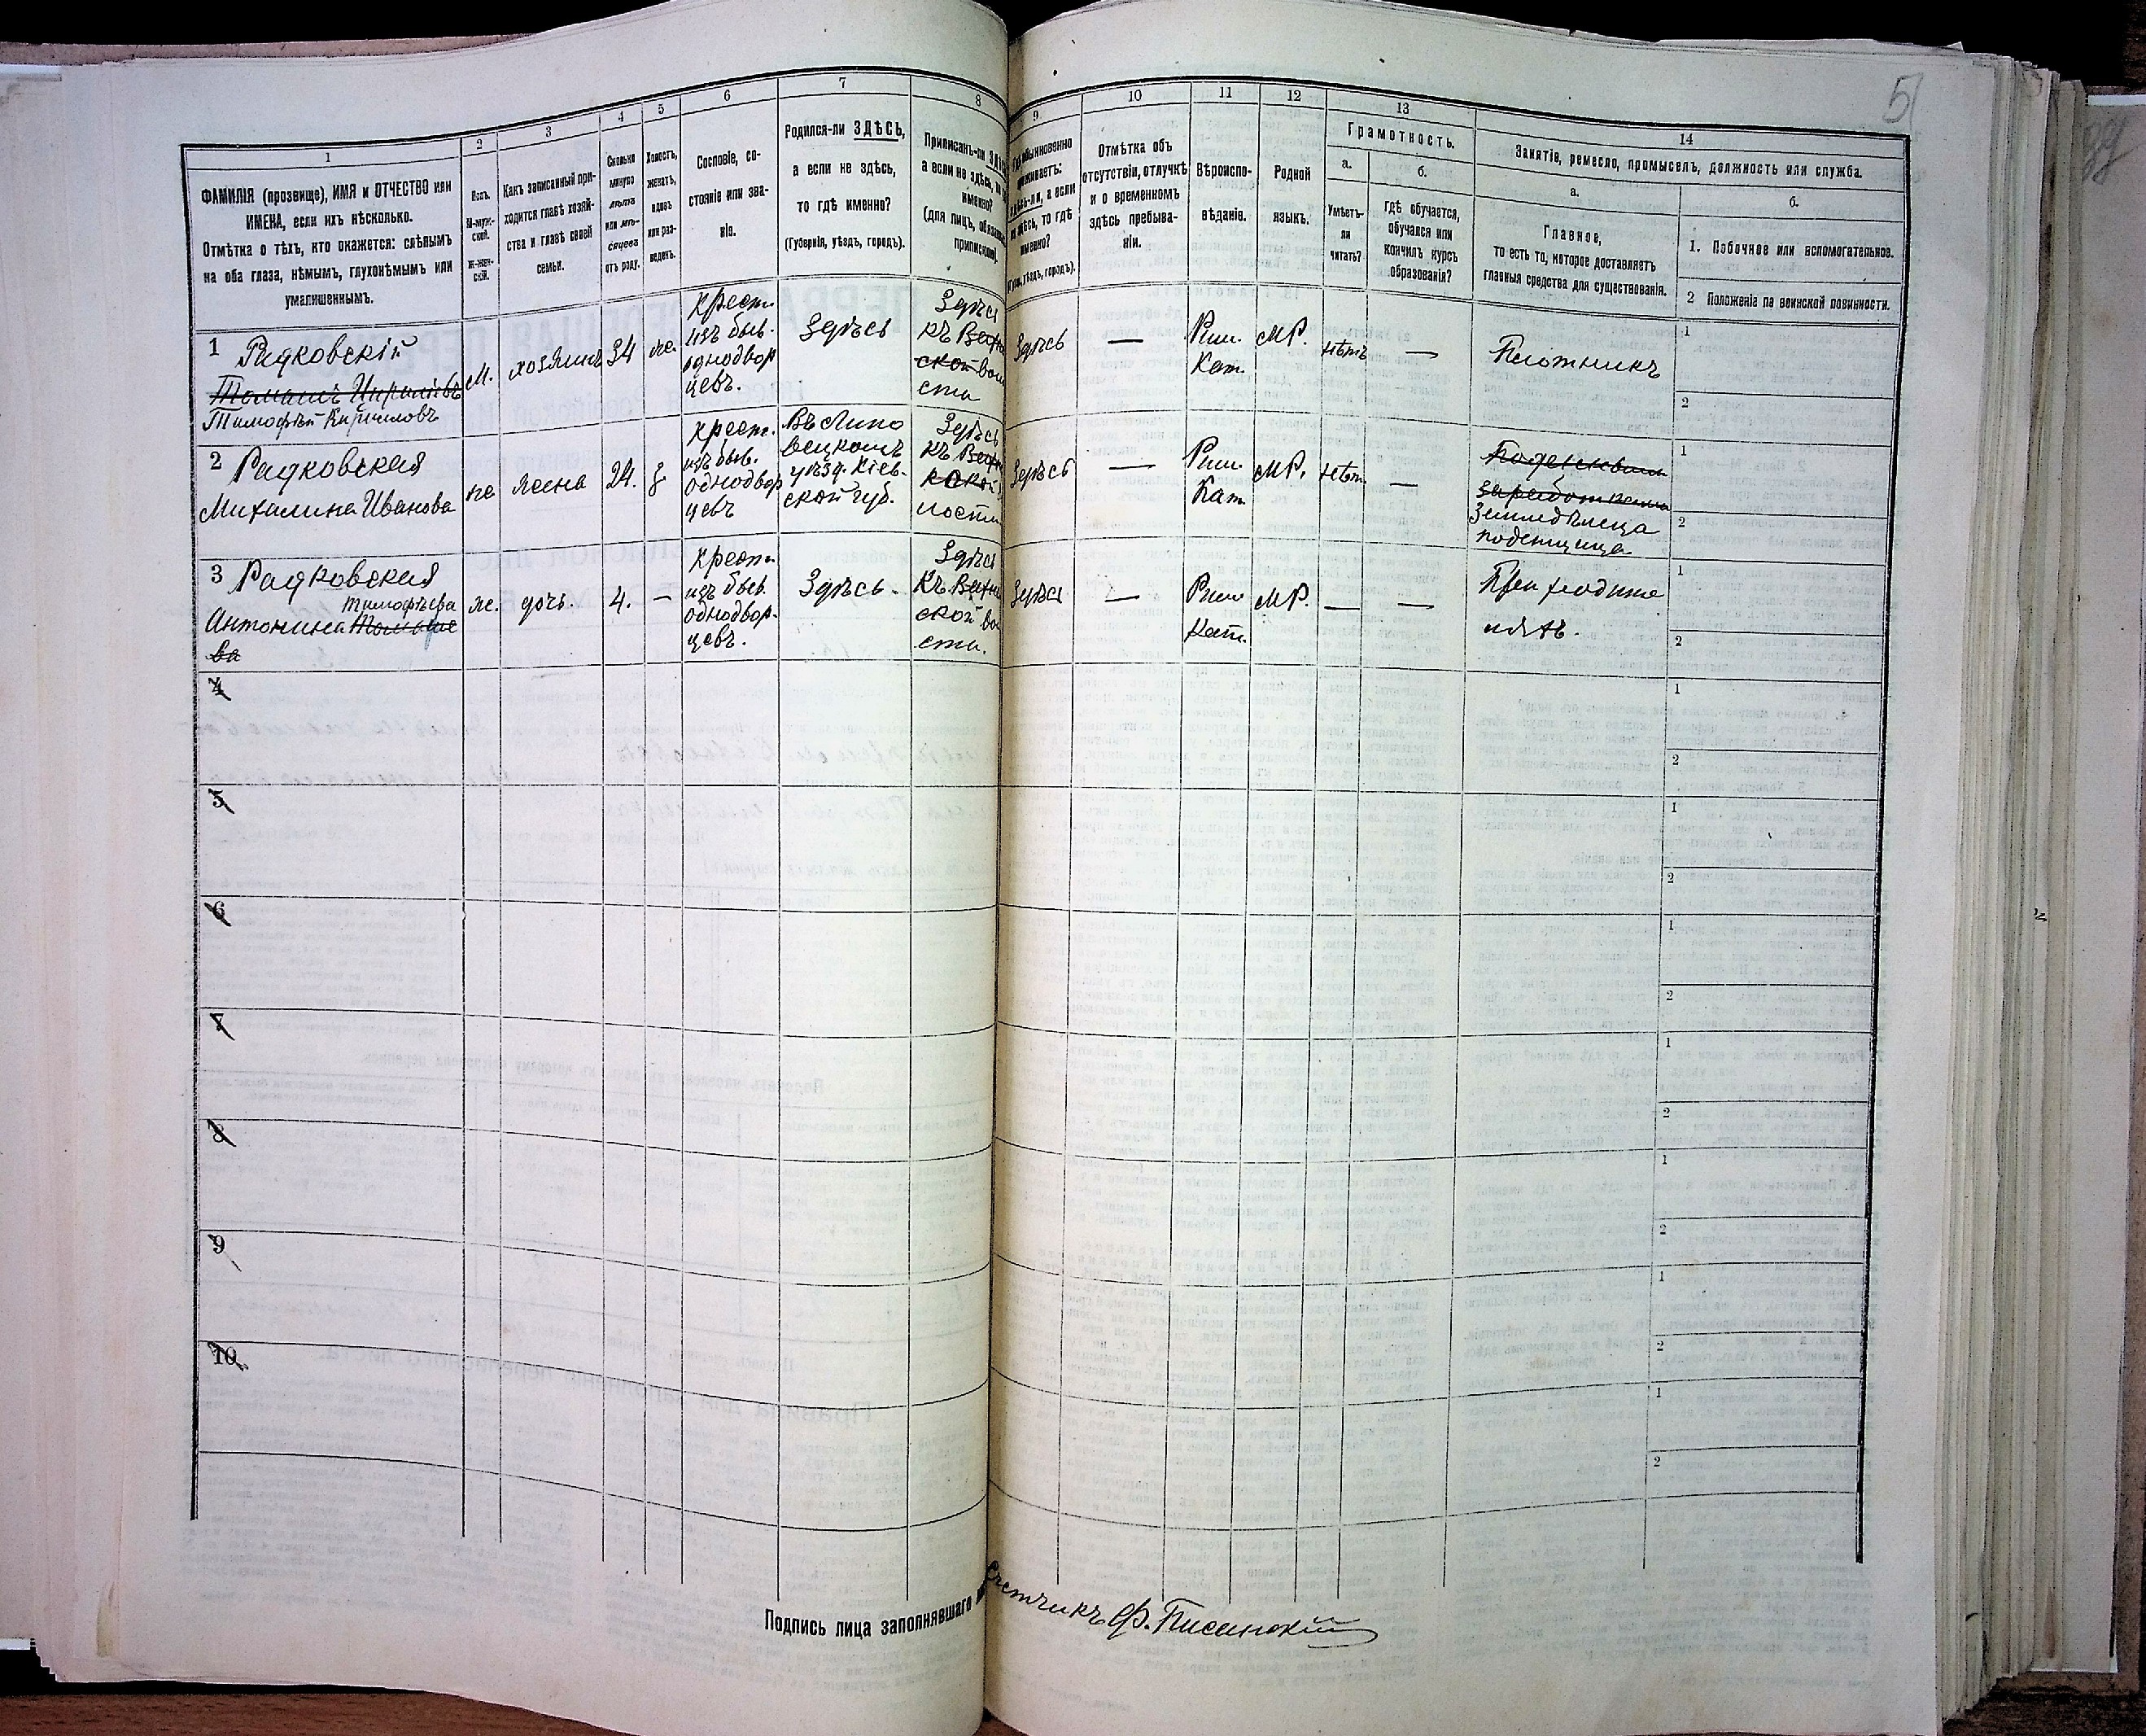 5
1 2 3 4 5 6 7 8 9 10 11 12 13 14
ФАМИЛІЯ (прозвище), ИМЯ и ОТЧЕСТВО или
ИМЕНА, если ихъ нѣсколько.
Отмѣтка о тѣхъ, кто окажется: слѣпымъ
на оба глаза, нѣмымъ, глухонѣмымъ или
умалишеннымъ.
Полъ.
М-муж-
ской.
Ж-жен-
скій.
Какъ записанный при-
ходится главѣ хозяй-
ства и главѣ своей
семьи.
Сколько
минуло
лѣтъ
или мѣ-
сяцевъ
отъ роду.
Холостъ,
женатъ,
вдовъ
или раз-
веденъ.
Сословіе, со-
стояніе или зва-
ніе.
Родился-ли ЗДѢСЬ,
а если не здѣсь,
то гдѣ именно?
(Губернія, уѣздъ, городъ).
Приписанъ-ли
а если не здѣсь, то
именно?
(для лицъ,
припискою).
обыкновенно
проживаетъ:
здѣсь-ли, а если
не здѣсь, то гдѣ
именно?
уѣздъ, городъ).
Отмѣтка объ
отсутствіи, отлучкѣ
и о временномъ
здѣсь пребыва-
ніи.
Вѣроиспо-
вѣданіе.
Родной
языкъ.
Грамотность.
а.
Умѣетъ-
ли
читать?
б.
гдѣ обучается,
обучался или
кончилъ курсъ
образованія?
Занятіе, ремесло, промыселъ, должность или служба.
а.
Главное,
то есть то, которое доставляетъ
главныя средства для существованія.
б.
1. Побочное или вспомогательное.
2 Положеніе по воинской повинности.
1 Радковскій
Тимофѣй Кирилловъ
М.
хозяинъ
34
же.
крест.
изъ быв.
однодвор
цевъ.
Здѣсь
Здѣсь
къ
ской
сти
Здѣсь
—
Рим.
Кат.
МР.
нѣтъ
—
Плотникъ
1
2
2 Радковская
Михалина Иванова
же
жена
24.
крест.
изъ быв.
однодвор
цевъ
Въ Липо
вецкомъ
уѣзд. Кіев-
ской губ.
Здѣсь
къ
Здѣсь
—
Рим.
Кат.
МР.
нѣт.
—
заработками
Земледѣлица
поденщица
1
2
3 Радковская
Тимофѣева
Антонина
ва
же.
дочь.
4.
—
крест.
изъ быв.
однодвор-
цевъ.
Здѣсь.
Здѣсь
къ
ской во
сти.
Здѣсь
—
Рим.
Кат.
МР.
—
—
При родите
ляхъ.
1
2
4
1
2
5
1
2
6
1
2
7
1
2
8
1
2
9
1
2
10
1
2
Подпись лица заполнявшаго
Счетчикъ Ф. Писанскій